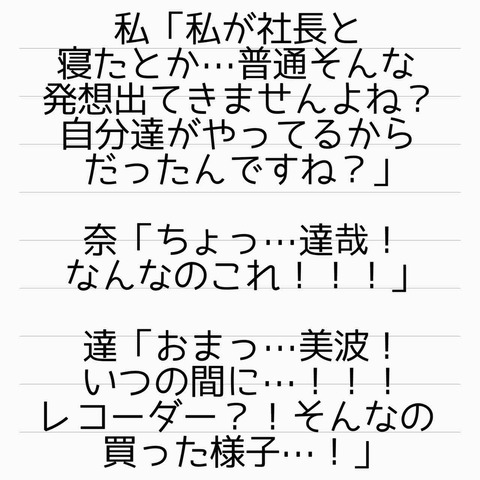 私「私が社長と
寝たとか…普通そんな
発想出てきませんよね？
自分達がやってるから
だったんですね？」
奈「ちょっ…達哉！
なんなのこれ！！！」
達「おまっ…美波！
いつの間に…！！！
レコーダー？！そんなの
買った様子…！」